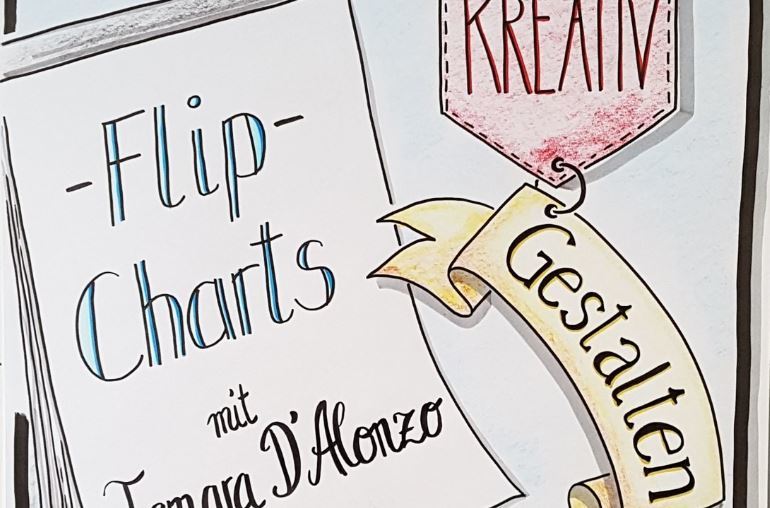 KREATIV
-Flip-
Charts
Gestalten
mit
Tamara D'Alonzo